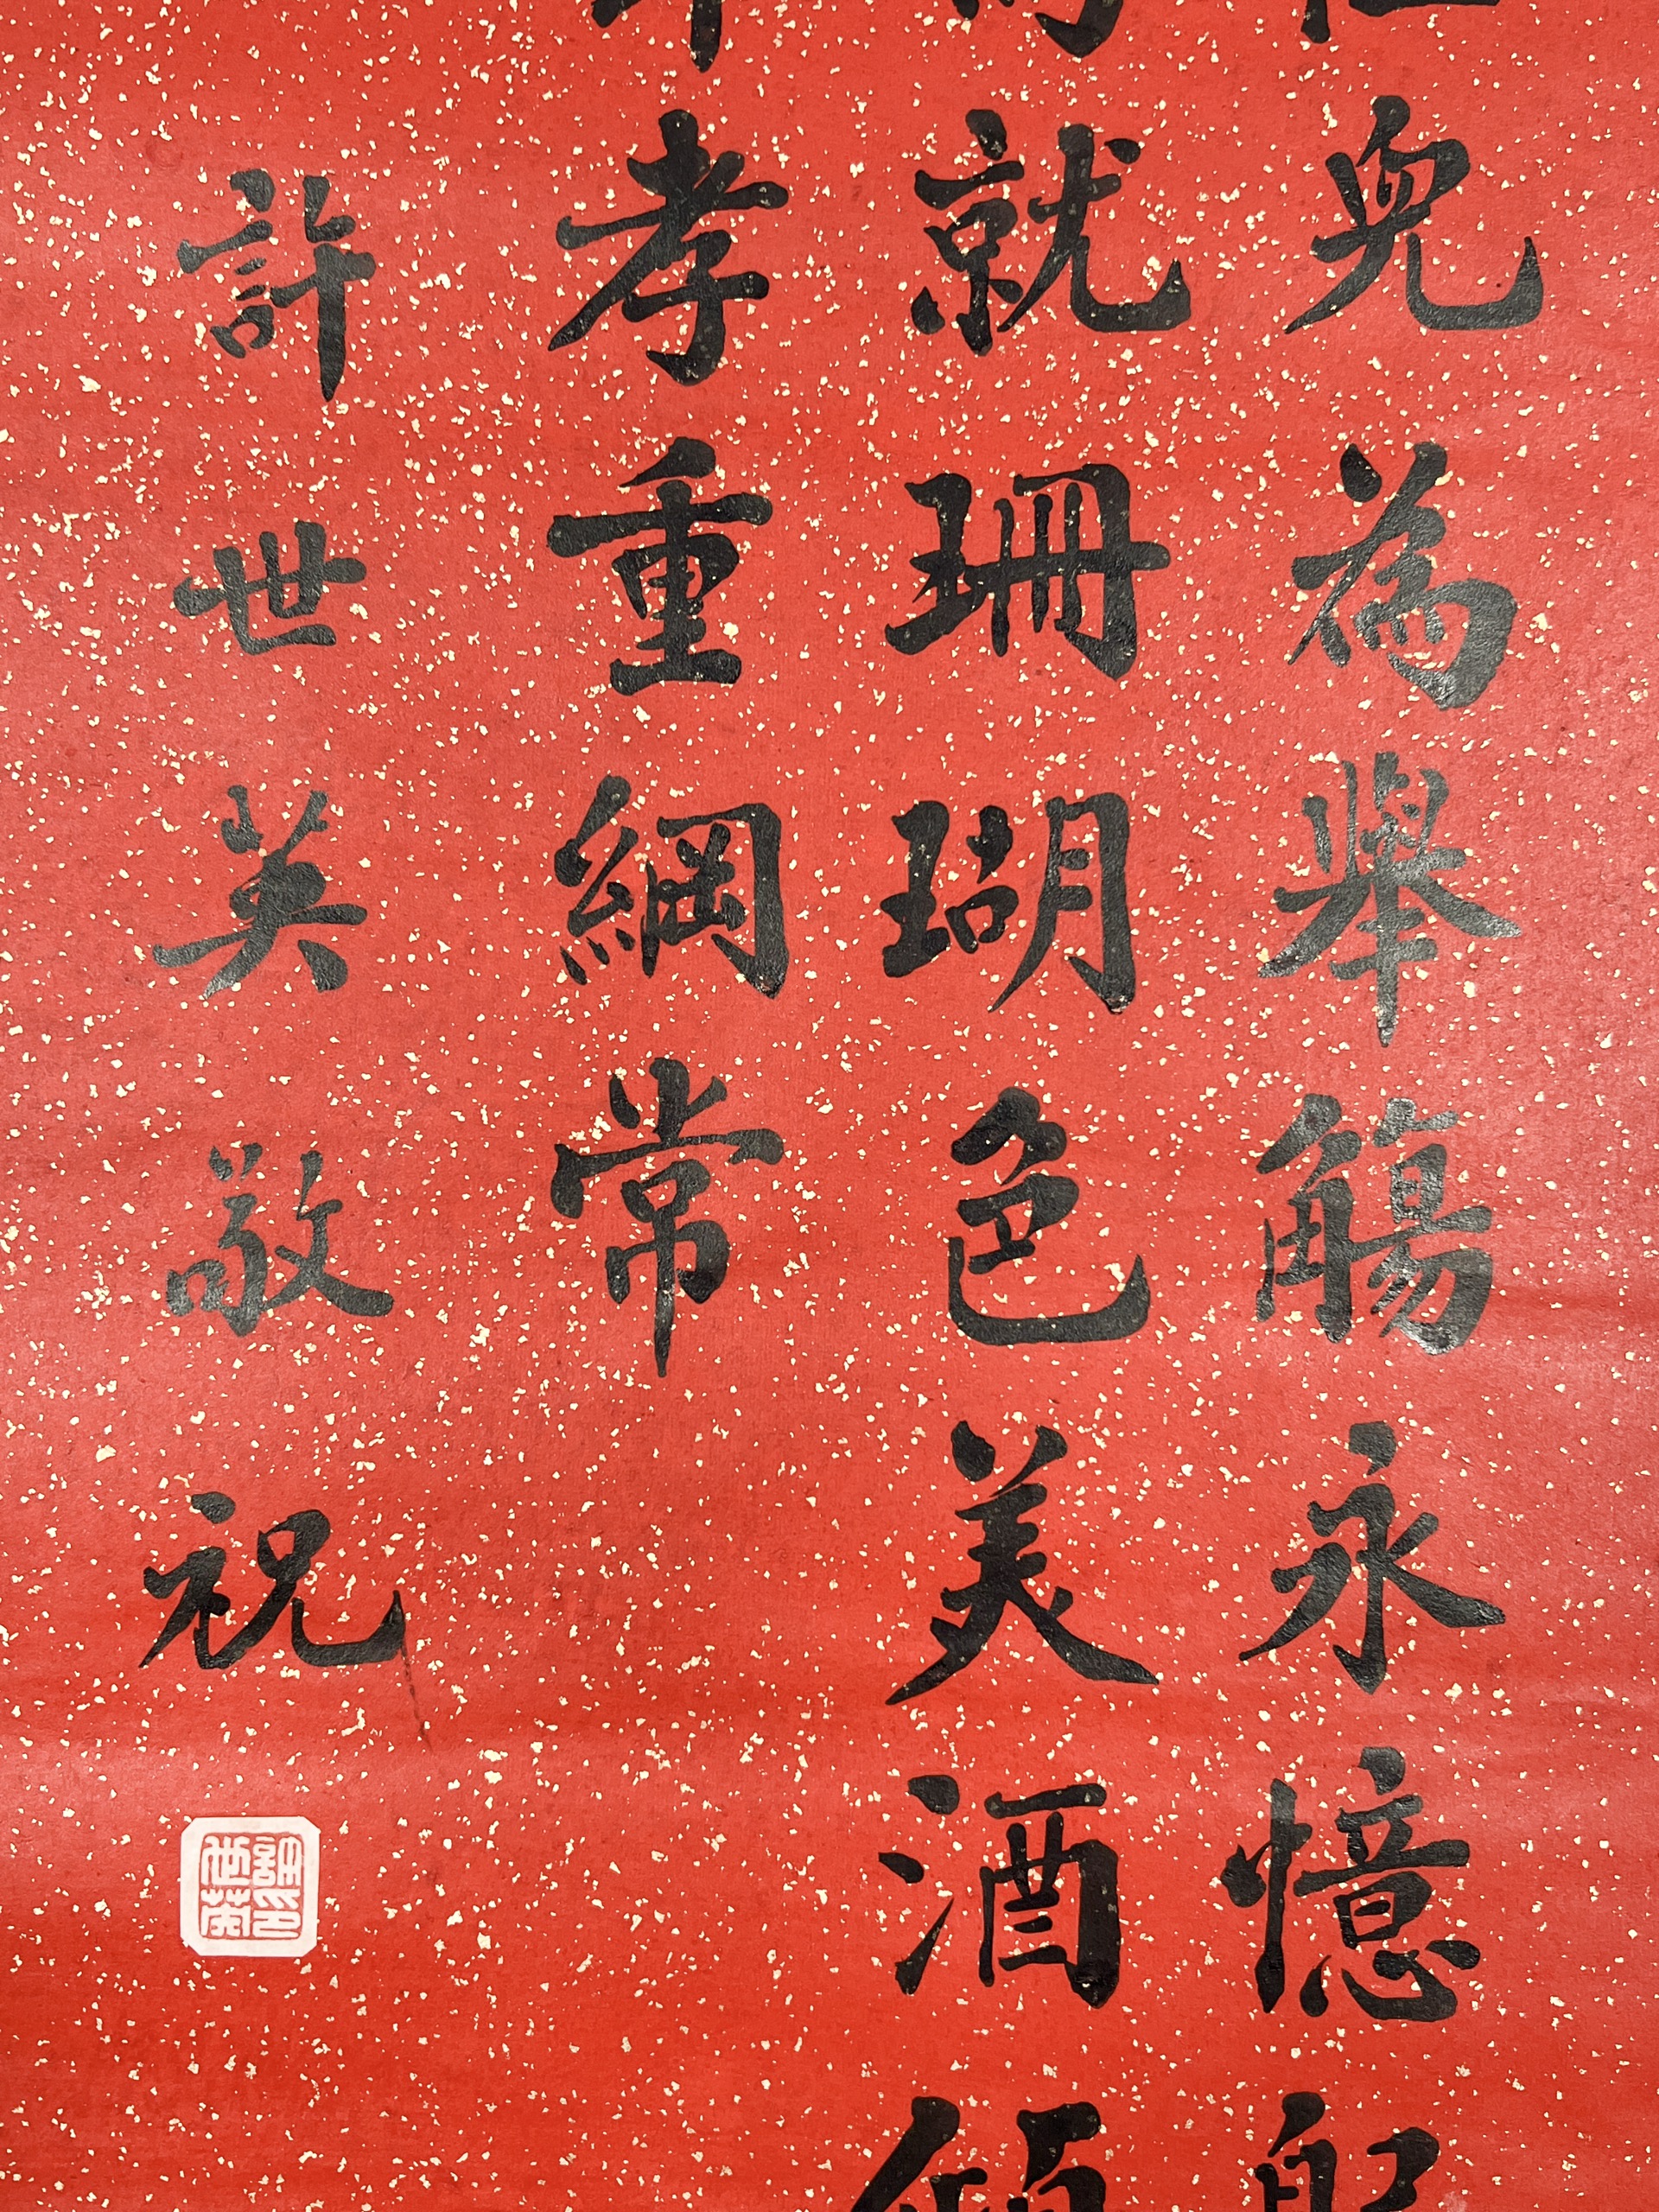 兕為舉觴永憶
就珊瑚色美酒
孝重綱常
許世英敬祝
許世英印